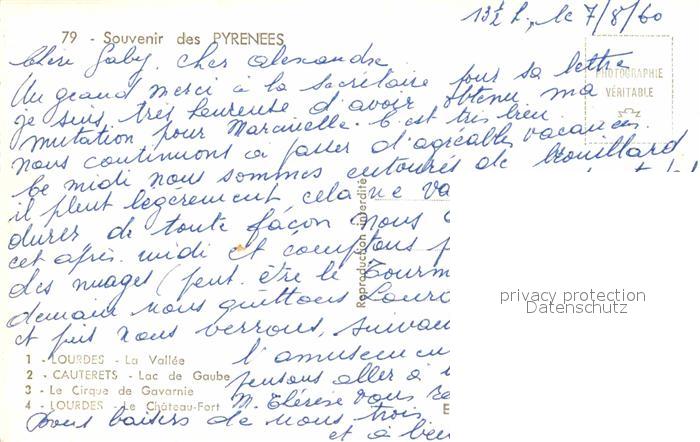 13h½, le 7/8/60
79 - Souvenir des PYRENEES
Chère Gaby, cher Alexandre
Un grand merci à la secrétaire pour sa lettre
Je suis très heureuse d'avoir obtenu ma
mutation pour Marcinelle. C'est très bien.
Nous continuons à passer d'agréables vacances.
Ce midi nous sommes entourés de brouillard
il pleut légèrement, cela ne va
durer de toute façon nous
cet après-midi et comptons
des nuages (peut-être le Tourm
demain nous quittons Lourd
et puis nous verrons, suivan
l'amusemen
pensons aller à
M. Thérèse vous
Doux baisers de nous trois
et à bien
PHOTOGRAPHIE
VÉRITABLE
Reproduction interdite
1 - LOURDES - La Vallée
2 - CAUTERETS - Lac de Gaube
3 - Le Cirque de Gavarnie
4 - LOURDES - Le Château-Fort
E
privacy protection
Datenschutz